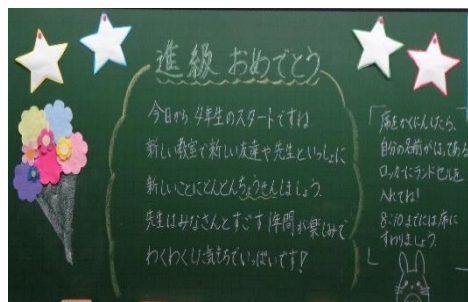 進級 おめでとう
今日から、4年生のスタートですね
新しい教室で新しい友達や先生といっしょに
新しいことにどんどんちょうせんしましょう。
先生はみなさんとすごす1年間が楽しみで
わくわくした気持ちでいっぱいです!
席をかくにんしたら、
自分の名前がはってある
ロッカーにランドセルを
入れてね!
8:10までには席に
すわりましょう。